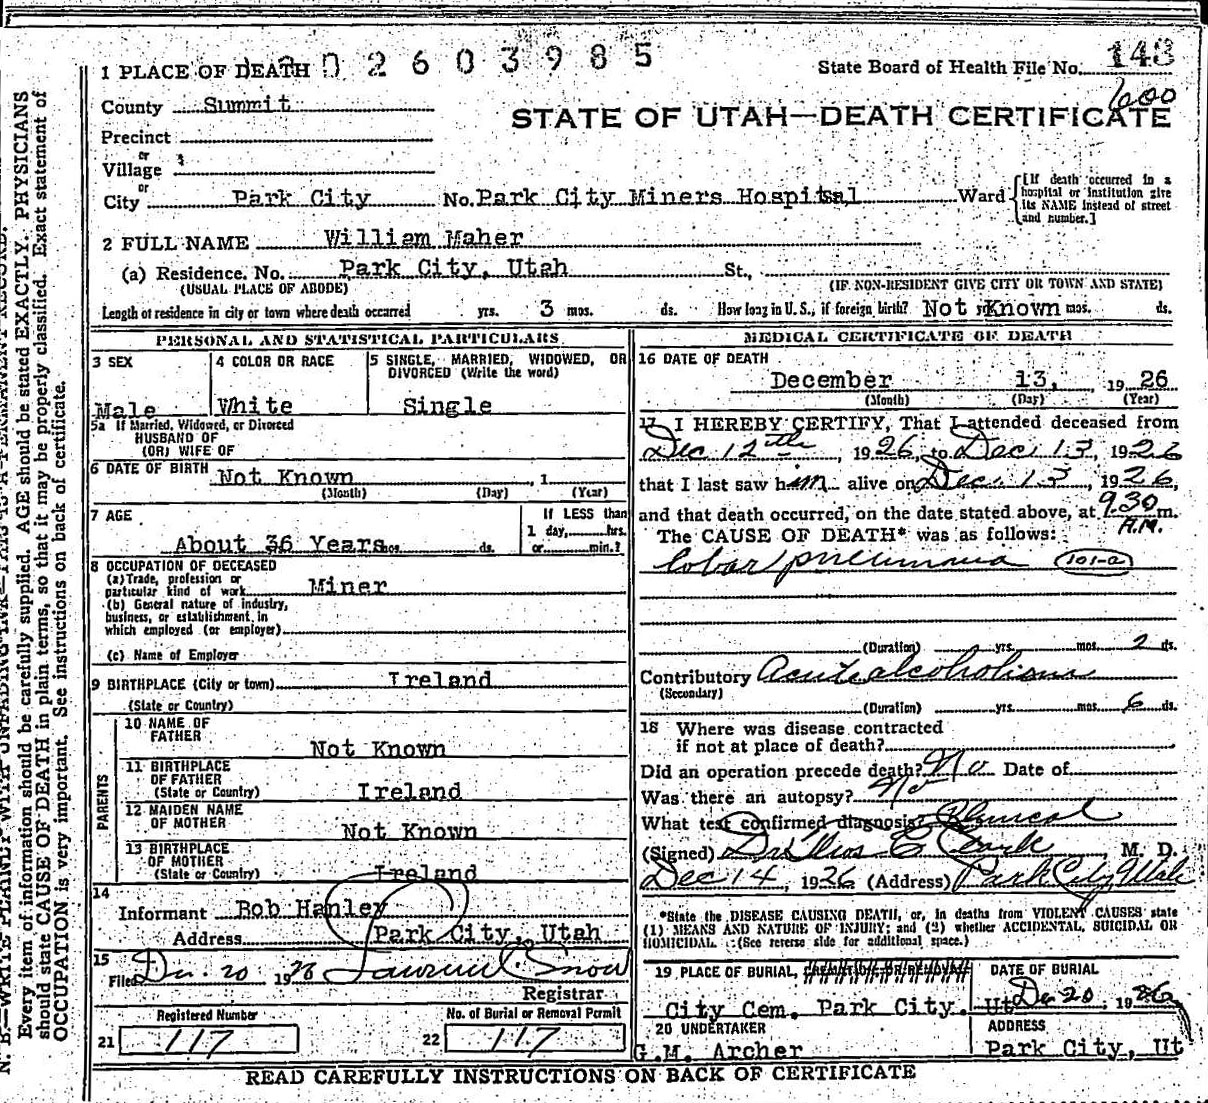 N. B.—WRITE PLAINLY WITH UNFADING INK—THIS IS A PERMANENT RECORD.
Every item of information should be carefully supplied. AGE should be stated EXACTLY. PHYSICIANS
should state CAUSE OF DEATH in plain terms, so that it may be properly classified. Exact statement of
OCCUPATION is very important. See instructions on back of certificate.
1 PLACE OF DEATH 02603985
State Board of Health File No. 143
600
County Summit
STATE OF UTAH—DEATH CERTIFICATE
Precinct
or
Village
or
City Park City No. Park City Miners Hospital Ward
[If death occurred in a hospital or institution give its NAME instead of street and number.]
2 FULL NAME William Maher
(a) Residence. No. Park City, Utah St.,
(USUAL PLACE OF ABODE) (IF NON-RESIDENT GIVE CITY OR TOWN AND STATE)
Length of residence in city or town where death occurred yrs. 3 mos. ds. How long in U. S., if foreign birth? Not Known mos. ds.
PERSONAL AND STATISTICAL PARTICULARS
3 SEX
Male
4 COLOR OR RACE
White
5 SINGLE, MARRIED, WIDOWED, OR
DIVORCED (Write the word)
Single
5a If Married, Widowed, or Divorced
HUSBAND OF
(OR) WIFE OF
6 DATE OF BIRTH Not Known , 1
(Month) (Day) (Year)
7 AGE
About 36 Years mos. ds.
If LESS than
1 day, hrs.
or min.?
8 OCCUPATION OF DECEASED
(a) Trade, profession or
particular kind of work Miner
(b) General nature of industry,
business, or establishment in
which employed (or employer)
(c) Name of Employer
9 BIRTHPLACE (City or town) Ireland
(State or Country)
PARENTS
10 NAME OF
FATHER
Not Known
11 BIRTHPLACE
OF FATHER
(State or Country) Ireland
12 MAIDEN NAME
OF MOTHER
Not Known
13 BIRTHPLACE
OF MOTHER
(State or Country) Ireland
14
Informant Bob Hanley
Address Park City, Utah
15
Filed Dec. 20 1926 Lawrence Snow
Registrar
Registered Number
21 117
No. of Burial or Removal Permit
22 117
MEDICAL CERTIFICATE OF DEATH
16 DATE OF DEATH
December 13, 1926
(Month) (Day) (Year)
17 I HEREBY CERTIFY, That I attended deceased from
Dec 12th, 1926, to Dec. 13, 1926
that I last saw him alive on Dec. 13, 1926,
and that death occurred, on the date stated above, at 9.30 m.
A.M.
The CAUSE OF DEATH* was as follows:
Lobar pneumonia 101-a
(Duration) yrs. mos. 2 ds.
Contributory Acute alcoholism
(Secondary)
(Duration) yrs. mos. 6 ds.
18 Where was disease contracted
if not at place of death?
Did an operation precede death? No Date of
Was there an autopsy? No
What test confirmed diagnosis? Clinical
(Signed) Dr. Thos C Clark, M. D.
Dec 14, 1926 (Address) Park City, Utah
*State the DISEASE CAUSING DEATH, or, in deaths from VIOLENT CAUSES state
(1) MEANS AND NATURE OF INJURY; and (2) whether ACCIDENTAL, SUICIDAL OR
HOMICIDAL. (See reverse side for additional space.)
19 PLACE OF BURIAL, CREMATION OR REMOVAL
City Cem. Park City. Ut
DATE OF BURIAL
Dec 20, 1926
20 UNDERTAKER
G.M. Archer
ADDRESS
Park City, Ut
READ CAREFULLY INSTRUCTIONS ON BACK OF CERTIFICATE